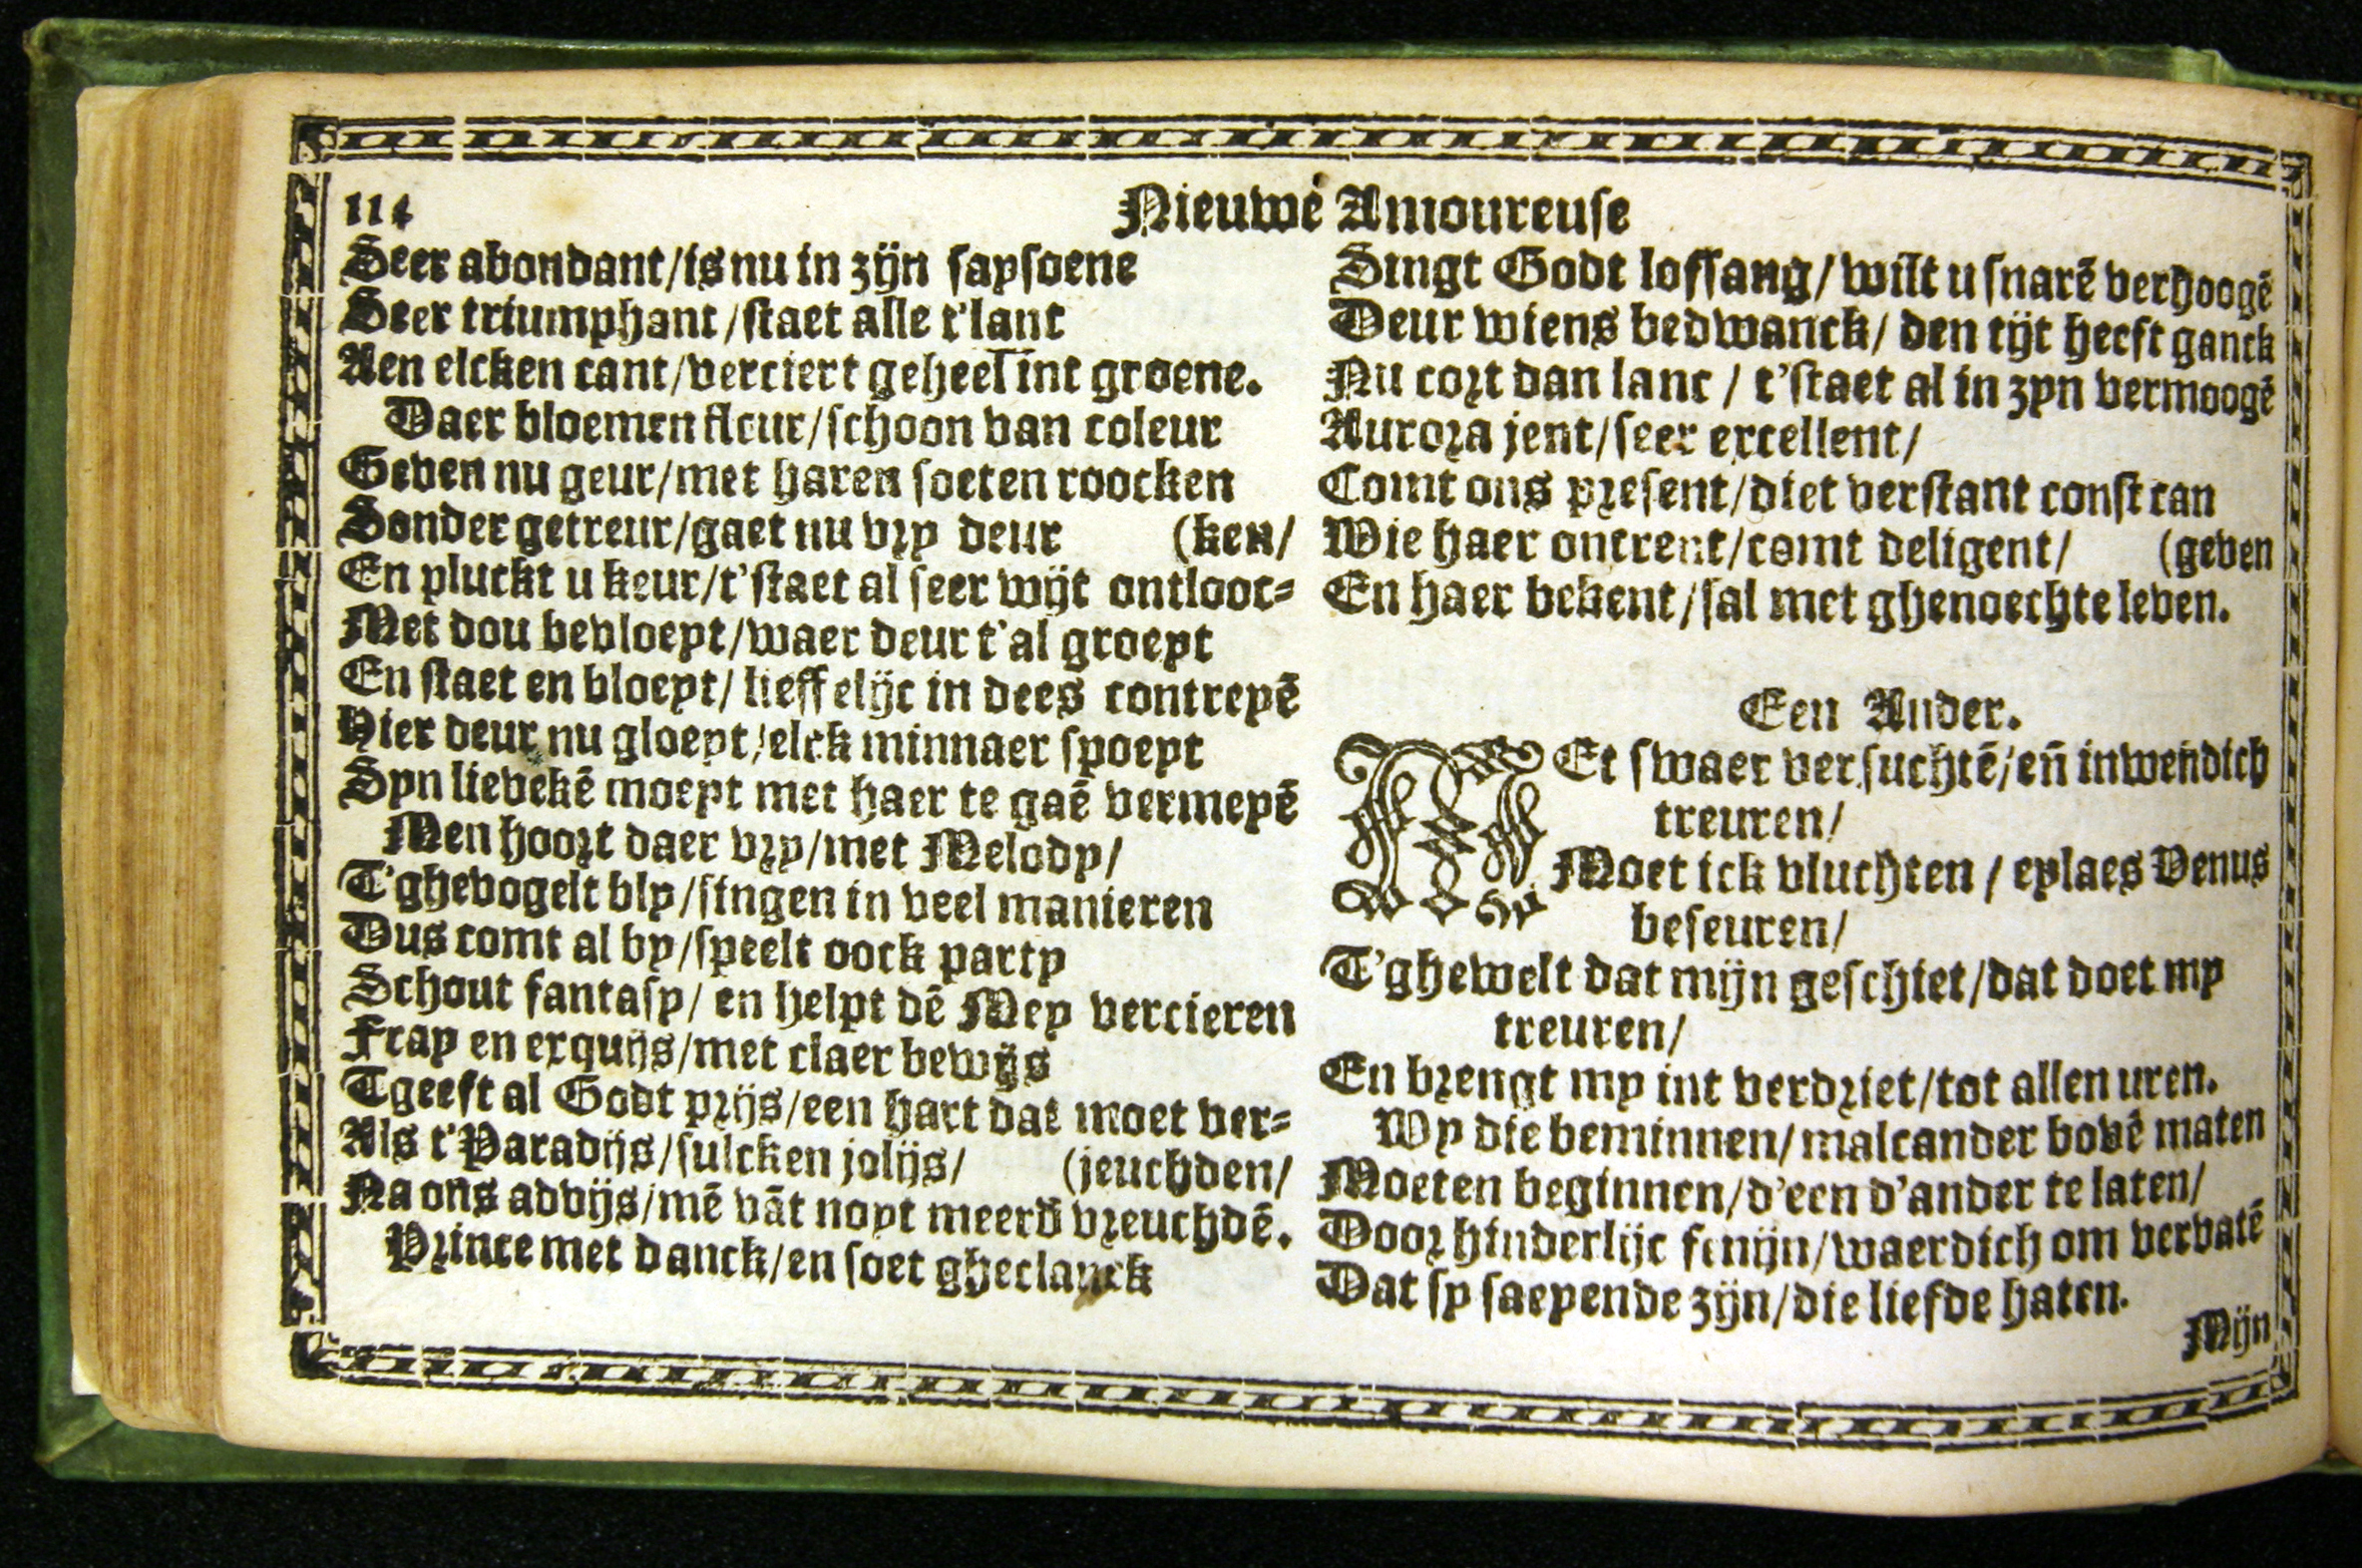 114
Nieuwe Amoureuse
Seer abondant/is nu in zijn saysoene
Seer triumphant/staet alle t'lant
Aen elcken cant/verciert geheel int groene.
Daer bloemen fleur/schoon van coleur
Geven nu geur/met haren soeten roocken
Sonder getreur/gaet nu vry deur (ken/
En pluckt u keur/t'staet al seer wijt ontlooc-
Met dou bevloeyt/waer deur t'al groeyt
En staet en bloeyt/lieffelijc in dees contreyē
Hier deur nu gloeyt/elck minnaer spoeyt
Syn lievekē moeyt met haer te gaē vermeyē
Men hoort daer vry/met Melody/
T'ghevogelt bly/singen in veel manieren
Dus comt al by/speelt oock party
Schout fantasy/en helpt dē Mey vercieren
Fray en exquijs/met claer bewijs
Tgeeft al Godt prijs/een hart dat moet ver-
Als t'Paradijs/sulcken jolijs/ (jeuchden/
Na ons advijs/mē vāt noyt meerd vreuchdē.
Prince met danck/en soet gheclanck
Singt Godt loffsang/wilt u snarē verhoogē
Deur wiens bedwanck/den tijt heeft ganck
Nu cort dan lanc/t'staet al in zyn vermoogē
Aurora jent/seer excellent/
Comt ons present/diet verstant const can
Wie haer ontrent/comt deligent/ (geven
En haer bekent/sal met ghenoechte leven.
Een Ander.
MEt swaer versuchtē/eñ inwendich
treuren/
Moet ick vluchten/eylaes Venus
beseuren/
T'ghewelt dat mijn geschiet/dat doet my
treuren/
En brengt my int verdriet/tot allen uren.
Wy die beminnen/malcander bovē maten
Moeten beginnen/d'een d'ander te laten/
Door hinderlijc fenijn/waerdich om vervatē
Dat sy saeyende zijn/die liefde haten.
Mijn